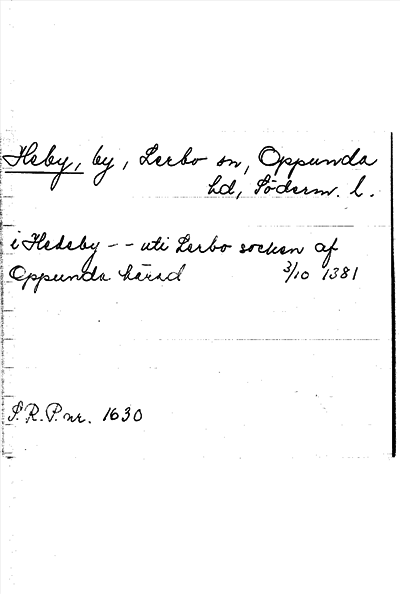 Heby, by, Lerbo sn, Oppunda
hd, Söderm. l.
i Hedeby -- uti Lerbo socken af
Oppunda härad 3/10 1381
S.R.P. nr. 1630